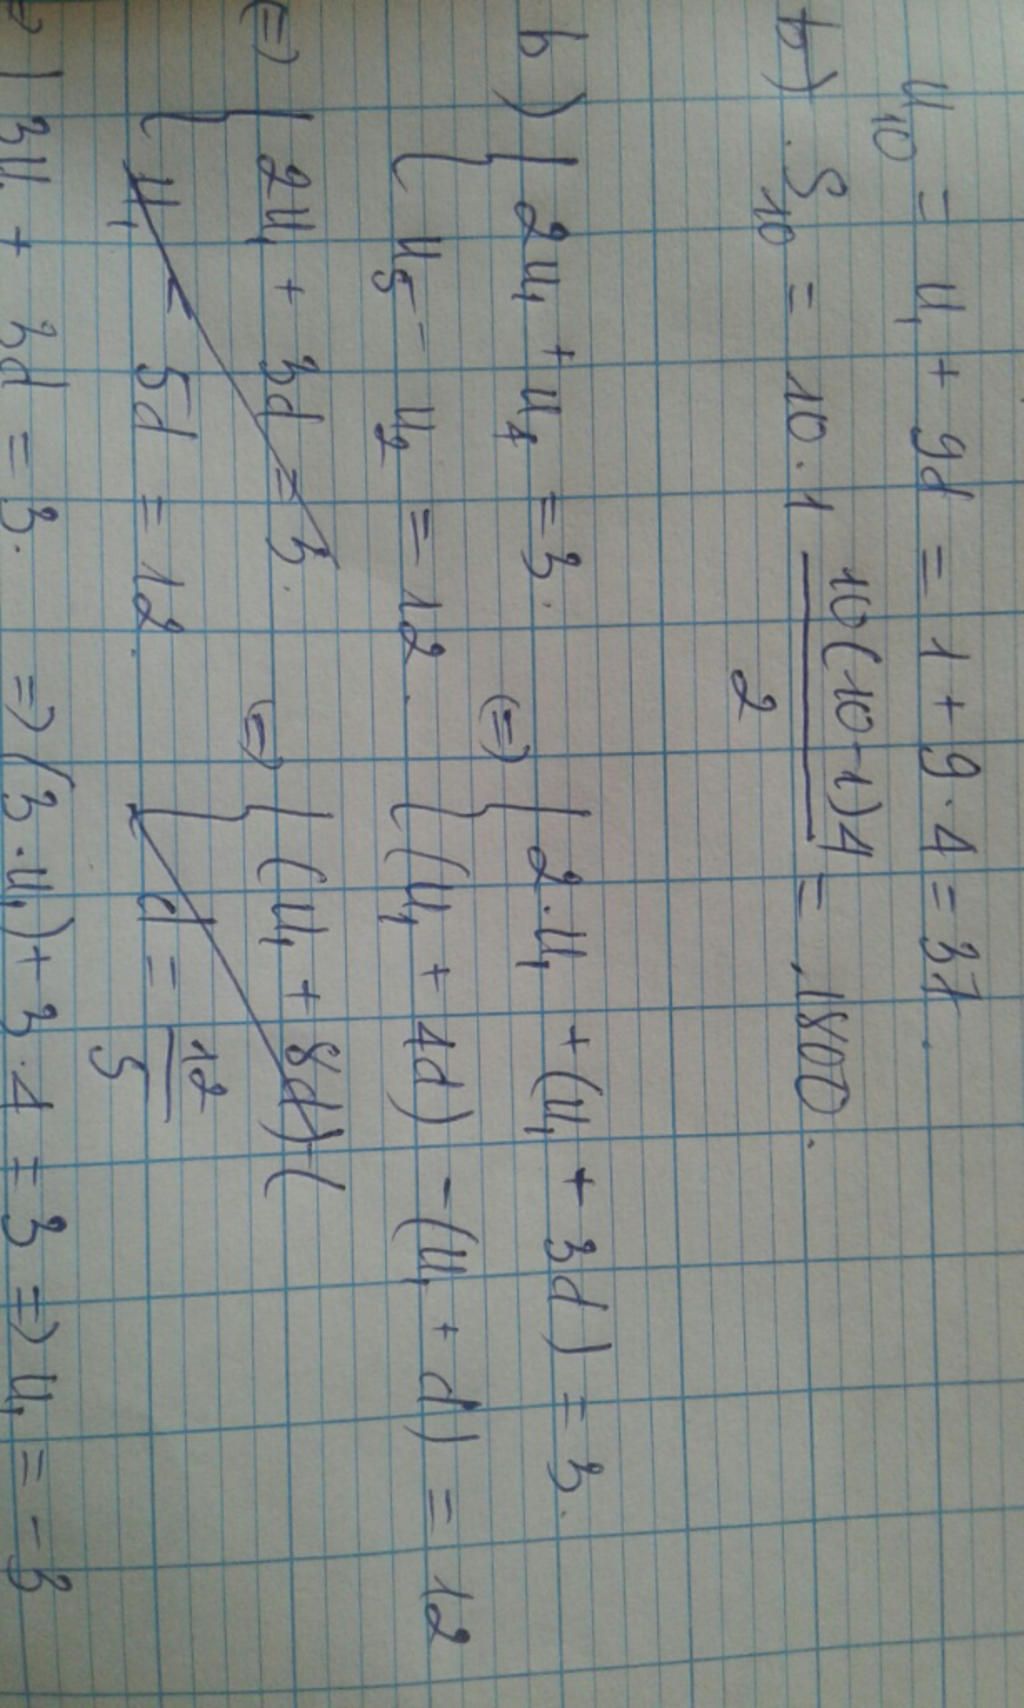 u₁₀ = u₁ + 9d = 1 + 9.4 = 37.
b) S₁₀ = 10.1 10(10-1)4/2 = 1800.
b) { 2u₁ + u₄ = 3. (=) { 2.u₁ + (u₁ + 3d) = 3.
u₅ - u₂ = 12. (u₁ + 4d) - (u₁ + d) = 12
(=) { 2u₁ + 3d = 3. (=) { (u₁ + 8d) - (
u₁ - 5d = 12. d = 12/5
=> 3u₁ + 3d = 3. => (3.u₁) + 3.4 = 3 => u₁ = -3